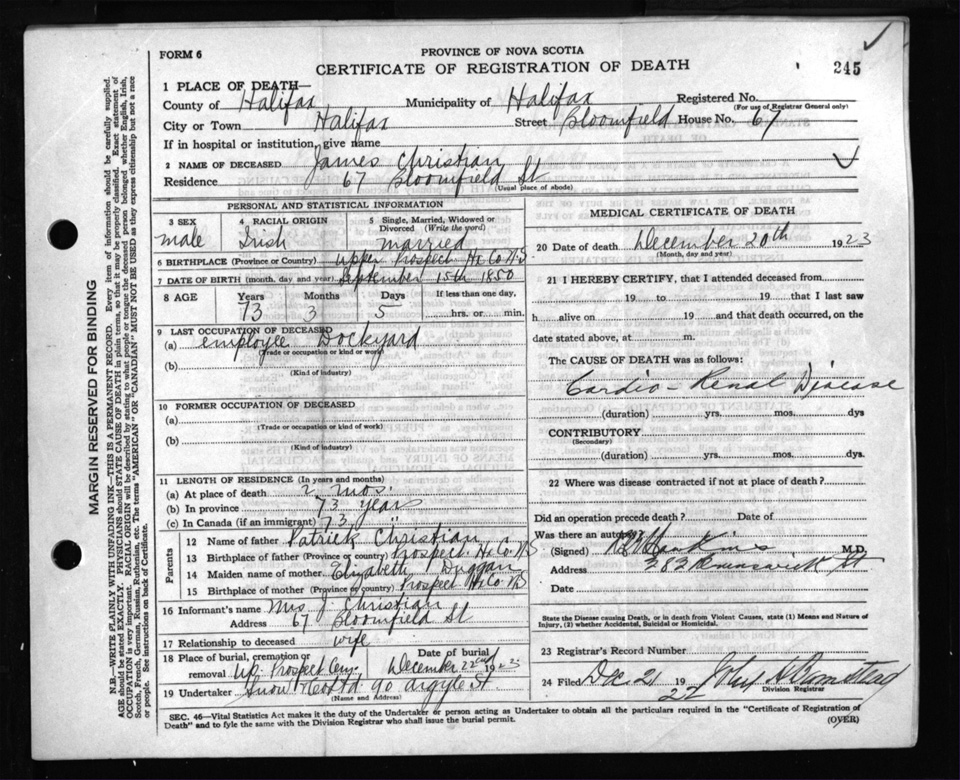 FORM 6
PROVINCE OF NOVA SCOTIA
CERTIFICATE OF REGISTRATION OF DEATH
245
1 PLACE OF DEATH—
County of Halifax Municipality of Halifax Registered No.
(For use of Registrar General only)
City or Town Halifax Street Bloomfield House No. 67
If in hospital or institution, give name
2 NAME OF DECEASED James Christian
Residence 67 Bloomfield St
(Usual place of abode)
PERSONAL AND STATISTICAL INFORMATION
3 SEX 4 RACIAL ORIGIN 5 Single, Married, Widowed or Divorced (Write the word)
male Irish married
6 BIRTHPLACE (Province or Country) Upper Prospect Hx Co N S
7 DATE OF BIRTH (month, day and year) September 15th 1850
8 AGE Years Months Days If less than one day,
73 3 5 hrs. or min.
9 LAST OCCUPATION OF DECEASED
(a) employee Dockyard
(Trade or occupation or kind or work)
(b)
(Kind of industry)
10 FORMER OCCUPATION OF DECEASED
(a)
(Trade or occupation or kind of work)
(b)
(Kind of industry)
11 LENGTH OF RESIDENCE (In years and months)
(a) At place of death 2 mos.
(b) In province 73 years
(c) In Canada (if an immigrant) 73
Parents
12 Name of father Patrick Christian
13 Birthplace of father (Province or country) Prospect Hx Co N S
14 Maiden name of mother Elizabeth Duggan
15 Birthplace of mother (Province or country) Prospect Hx Co N S
16 Informant's name Mrs J. Christian
Address 67 Bloomfield St
17 Relationship to deceased wife
18 Place of burial, cremation or removal Up. Prospect Cem Date of burial December 22nd 1923
19 Undertaker Snow & Co Ltd 90 Argyle St.
(Name and Address)
MEDICAL CERTIFICATE OF DEATH
20 Date of death December 20th 1923
(Month, day and year)
21 I HEREBY CERTIFY, that I attended deceased from
19 to 19 that I last saw
h alive on 19 and that death occurred, on
date stated above, at m.
The CAUSE OF DEATH was as follows:
Cardio-Renal Disease
(duration) yrs. mos. dys
CONTRIBUTORY
(Secondary)
(duration) yrs. mos. dys.
22 Where was disease contracted if not at place of death?
Did an operation precede death? Date of
Was there an autopsy?
(Signed) M.D.
Address 282 Brunswick St
Date
State the Disease causing Death, or in death from Violent Causes, state (1) Means and Nature of Injury, (2) whether Accidental, Suicidal or Homicidal.
23 Registrar's Record Number
24 Filed Dec 21 19
Division Registrar
SEC. 46—Vital Statistics Act makes it the duty of the Undertaker or person acting as Undertaker to obtain all the particulars required in the "Certificate of Registration of
Death" and to fyle the same with the Division Registrar who shall issue the burial permit.
(OVER)
MARGIN RESERVED FOR BINDING
N.B.—WRITE PLAINLY WITH UNFADING INK—THIS IS A PERMANENT RECORD. Every item of information should be carefully supplied.
AGE should be stated EXACTLY. PHYSICIANS should STATE CAUSE OF DEATH in plain terms, so that it may be properly classified. Exact statement of
OCCUPATION is very important. RACIAL ORIGIN will be described by stating to what people or tongue the deceased person belonged whether English, Irish,
Scotch, French, German, Russian, Ruthenian, etc. The terms "AMERICAN" OR "CANADIAN" MUST NOT BE USED as they express citizenship but not a race
or people. See instructions on back of Certificate.